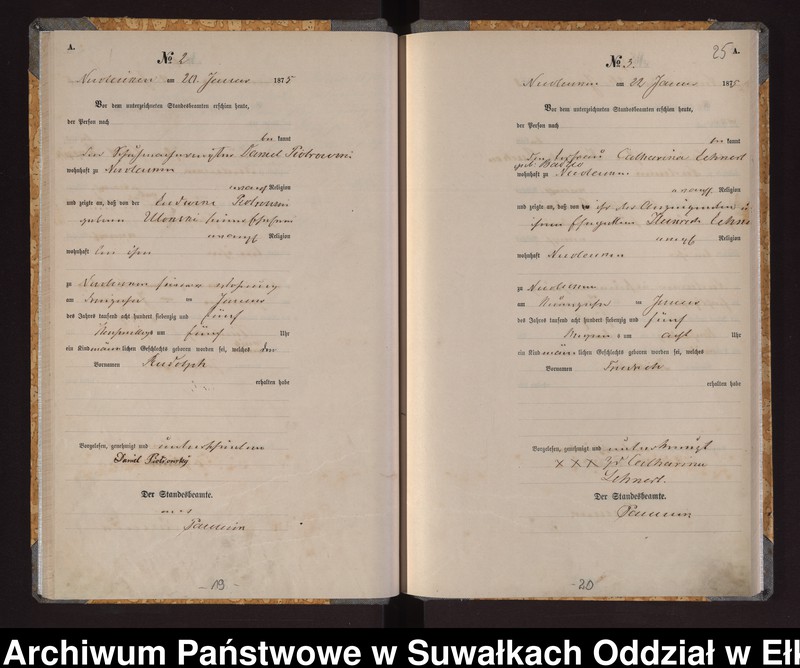 A.
№ 2
am 20. Januar 1875
Vor dem unterzeichneten Standesbeamten erschien heute,
der Person nach
be kannt
der Schuhmachermeister Daniel Piotrowski
wohnhaft zu
evang Religion
und zeigte an, daß von der
geborene seine Ehefrau
evangl Religion
wohnhaft bei ihm
zu seiner Wohnung
am dreizehn ten Januar
des Jahres tausend acht hundert siebenzig und fünf
Nachmittags um fünf Uhr
ein Kind männlichen Geschlechts geboren worden sei, welches den
Vornamen Rudolph
erhalten habe
Vorgelesen, genehmigt und unterschrieben
Daniel Piotrowsky
Der Standesbeamte.
19
25 A.
№ 3.
am 22 Januar 1875
Vor dem unterzeichneten Standesbeamten erschien heute,
der Person nach
be kannt
Catharina Lehnert
wohnhaft zu
evangl. Religion
und zeigte an, daß von
ihrem Ehegatten
evangl Religion
wohnhaft
zu
am ten Januar
des Jahres tausend acht hundert siebenzig und fünf
um acht Uhr
ein Kind männlichen Geschlechts geboren worden sei, welches
Vornamen Friedrich
erhalten habe
Vorgelesen, genehmigt und unterkreuzt
XXX Catharina
Lehnert.
Der Standesbeamte.
20
Archiwum Państwowe w Suwałkach Oddział w Ełk